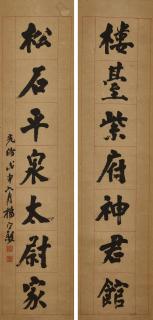 樓臺紫府神君館
松石平泉太尉家
光緒戊申八月楊守敬